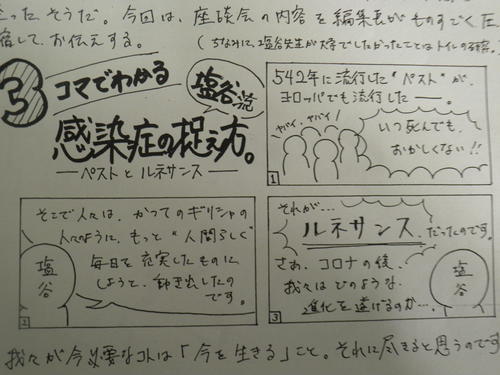 まったそうだ。今回は、座談会の内容を編集長がものすごく圧
縮して、お伝えする。
(ちなみに、塩谷先生が大学でしたかったことはトイレの研究。
3コマでわかる
塩谷流
感染症の捉え方。
―ペストとルネサンス―
542年に流行した“ペスト”が、
ヨーロッパでも流行した――。
ヤバイ、ヤバイ!
いつ死んでも、
おかしくない!!
1
そこで人々は、かつてのギリシャの
人々のように、もっと“人間らしく”
毎日を充実したものに
しようと、動き出したの
です。
塩谷
2
それが…
ルネサンス、だったのです。
さぁ、コロナの後、
我々はどのような
進化を遂げるのか…。
塩谷
3
我々が今必要なコトは「今を生きる」こと。それに尽きると思うのです